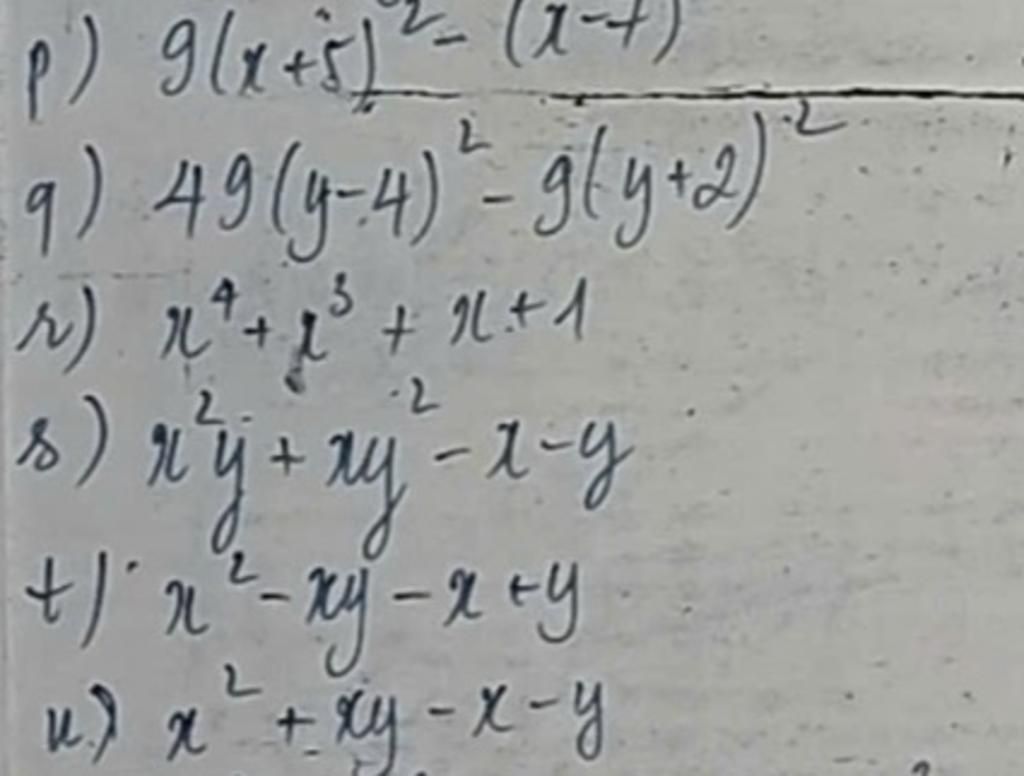 p) 9(x+5)² - (x-7)
q) 49(y-4)² - 9(y+2)²
r) x⁴ + x³ + x + 1
s) x²y + xy² - x - y
t) x² - xy - x + y
u) x² + xy - x - y